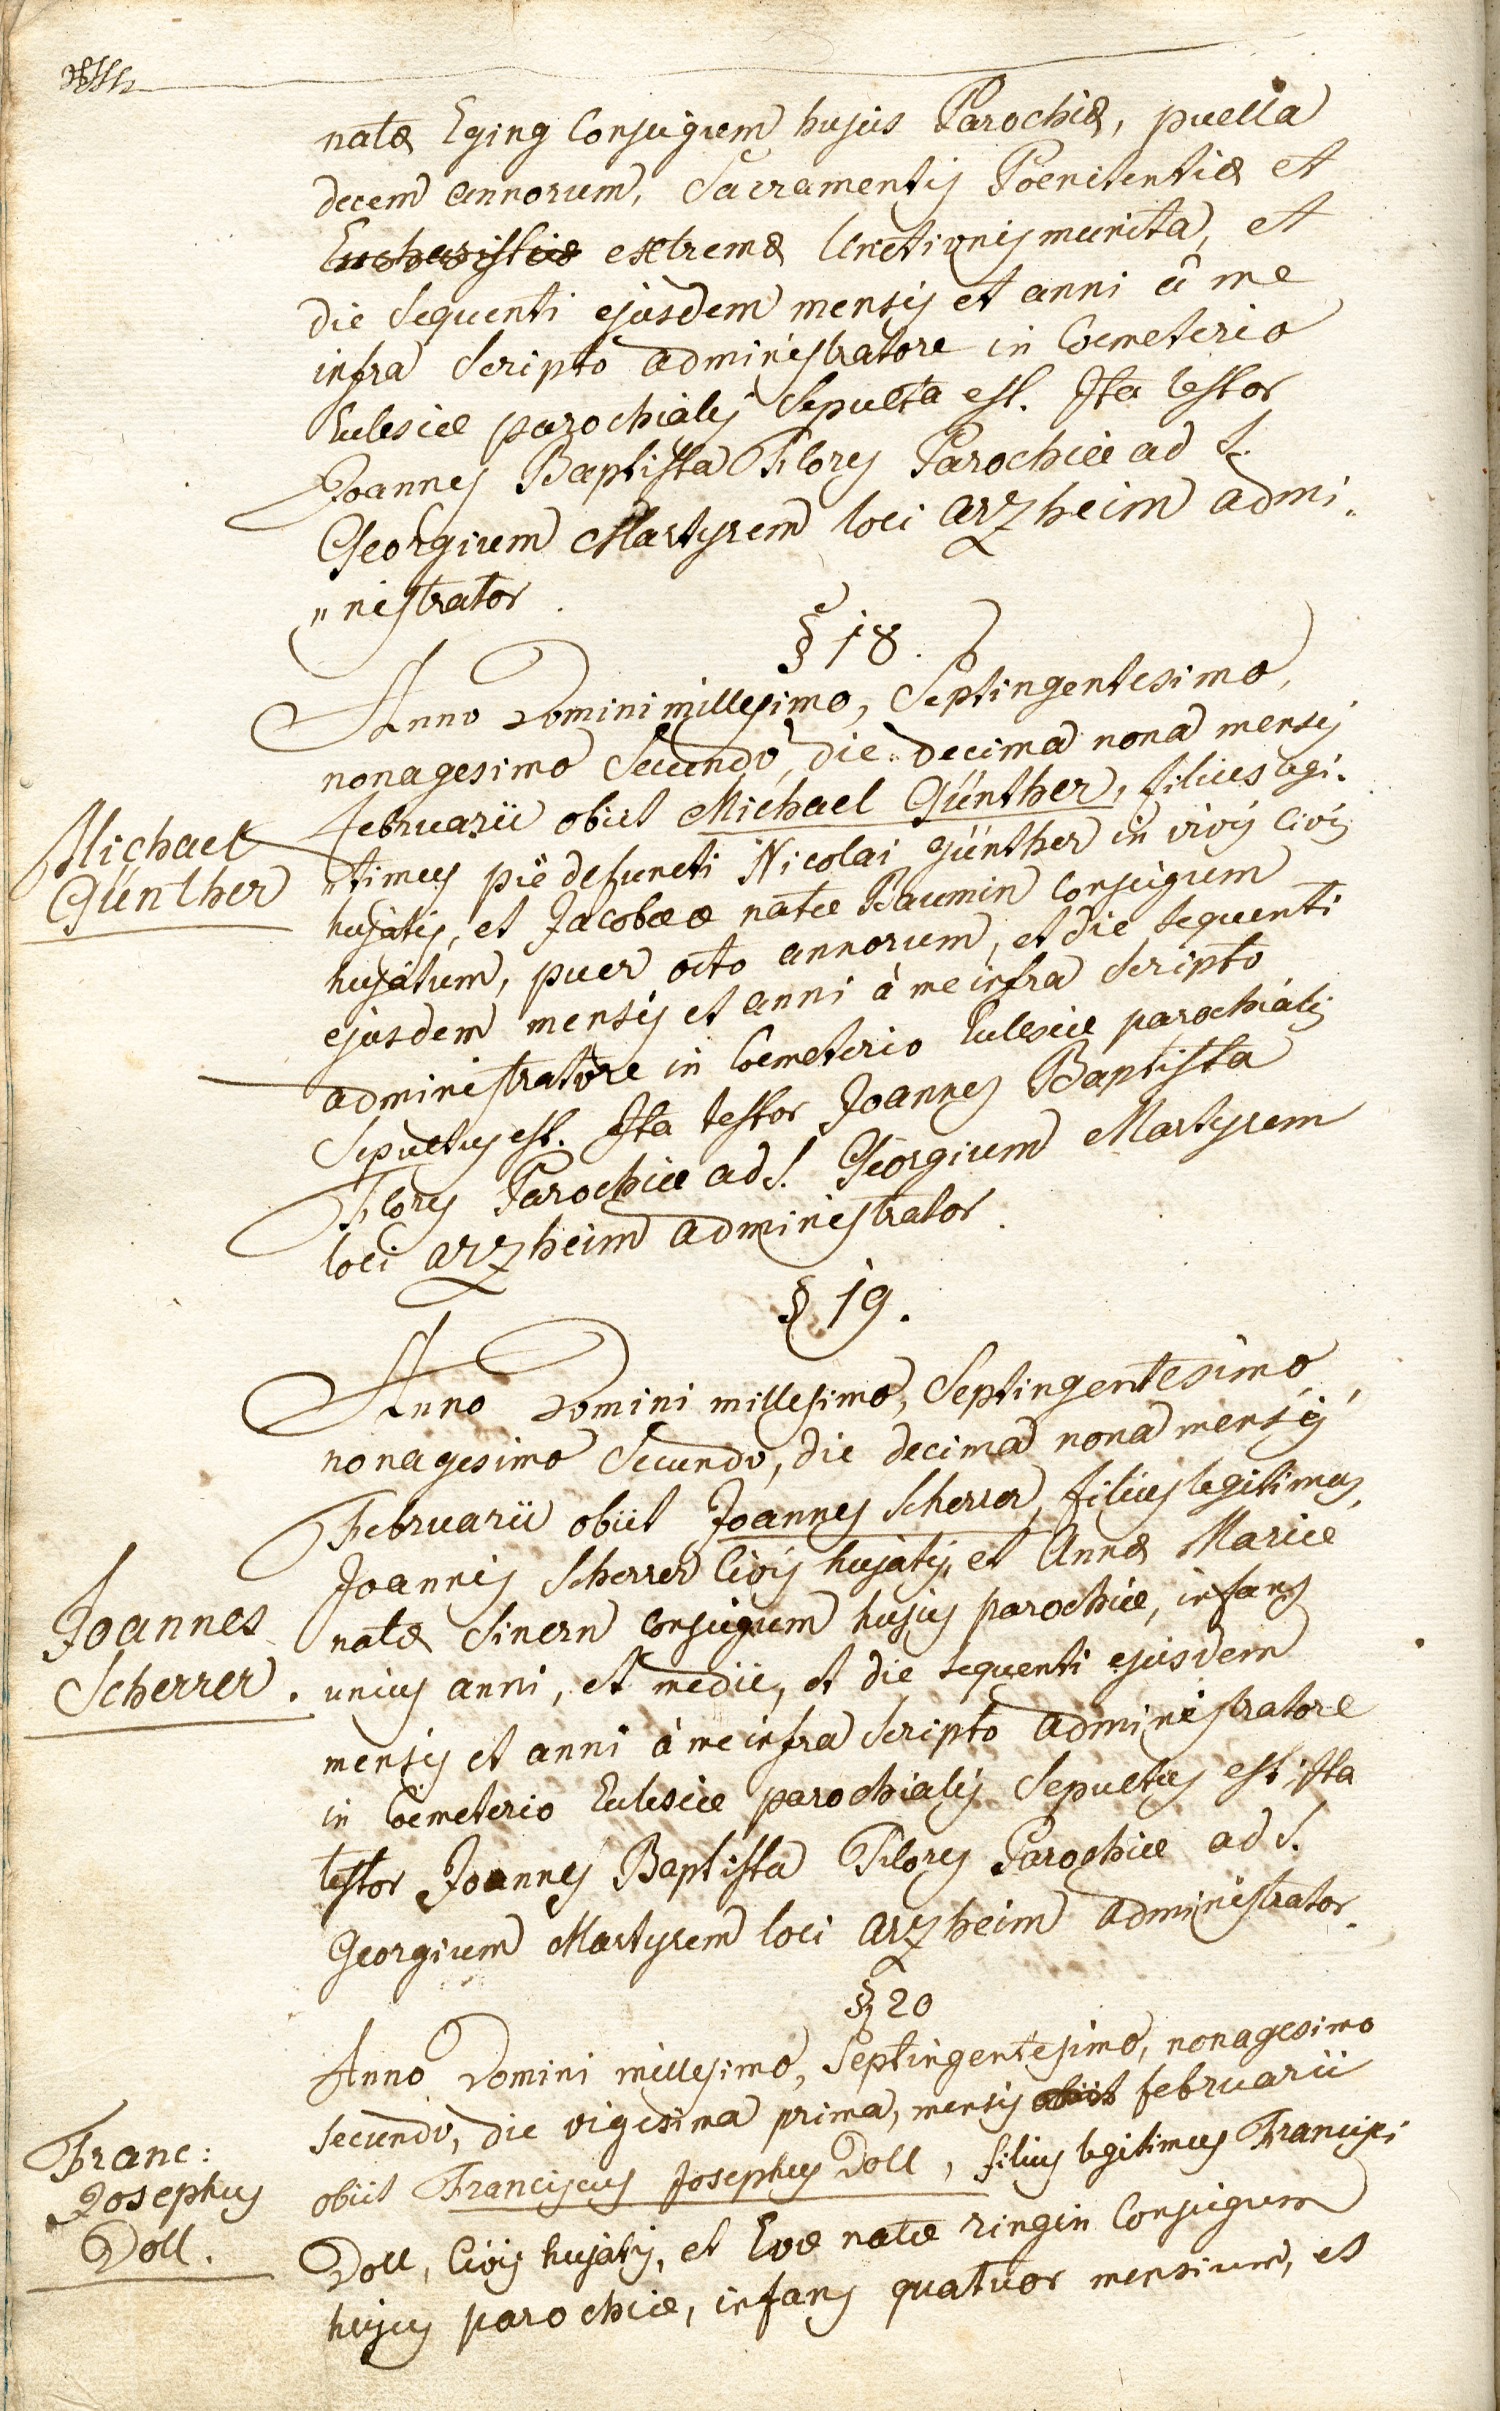 natæ Eging Conjugum hujus Parochiæ, puella
decem annorum, Sacramentis Poenitentiæ et
Eucharistiæ extremæ Unctionis munita, et
die sequenti ejusdem mensis et anni à me
infra scripto administratore in Coemeterio
Ecclesiæ parochialis sepulta est. Ita testor
Joannes Baptista Flory Parochiæ ad S.
Georgium Martyrem loci Arzheim admi„
„nistrator.
§ 18.
Anno Domini millesimo, Septingentesimo,
nonagesimo Secundo, die decima nona mensis
Februarii obiit Michael Günther, filius legi„
„timus piè defuncti Nicolai Günther in vivis Civis
hujatis, et Jacobææ natæ Baumin conjugum
hujatum, puer octo annorum, et die sequenti
ejusdem mensis et anni à me infra scripto
administratore in Coemeterio Ecclesiæ parochialis
Sepultus est. Ita testor Joannes Baptista
Flory Parochiæ ad S. Georgium Martyrem
loci Arzheim administrator.
Michael
Günther
§ 19.
Anno Domini millesimo, Septingentesimo,
nonagesimo Secundo, die decima nona mensis
Februarii obiit Joannes Scherrer, filius legitimus
Joannis Scherrer Civis hujatis, et Annæ Mariæ
natæ Sinern conjugum hujus parochiæ, infans
unius anni, et medii, et die sequenti ejusdem
mensis et anni à me infra scripto administratore
in Coemeterio Ecclesiæ parochialis Sepultus est ita
testor Joannes Baptista Flory Parochiæ ad S.
Georgium Martyrem loci Arzheim administrator.
Joannes
Scherrer.
§ 20
Anno Domini millesimo, Septingentesimo, nonagesimo
secundo, die vigesima prima, mensis obiit februarii
obiit Franciscus Josephus Doll, filius legitimus Francisci
Doll, Civis hujatis, et Evæ natæ Ringin Conjugum
hujus parochiæ, infans quatuor mensium, et
Franc:
Josephus
Doll.